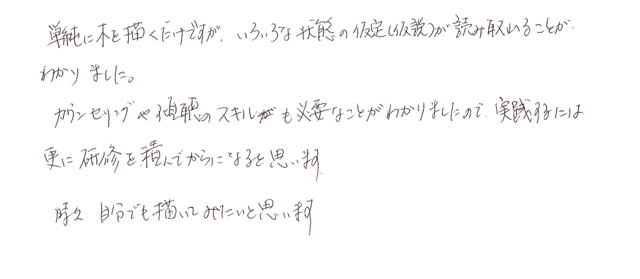 単純に木を描くだけですが、いろいろな状態の仮定(仮説)が読み取れることが
わかりました。
カウンセリングや傾聴のスキルも必要なことがわかりましたので、実践するには
更に研修を積んでからになると思います
時々 自分でも描いてみたいと思います